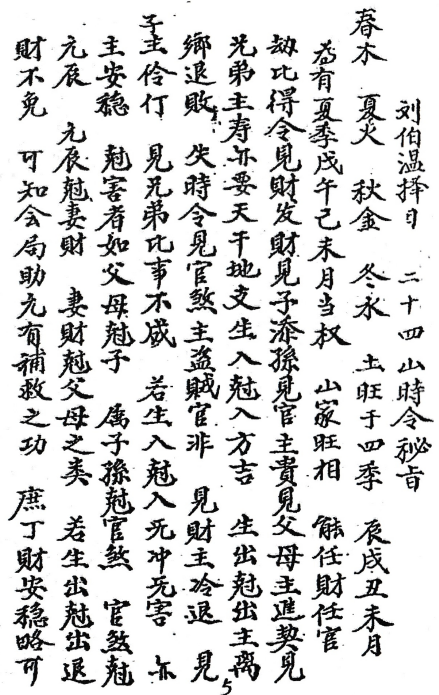 刘伯温择日　二十四山時令秘旨
春木　夏火　秋金　冬水　土旺于四季　辰戌丑未月
為有夏季戊午己未月当权　山家旺相　能任財任官
劫比得令見財发財見子添孫見官主貴見父母主進契見
兄弟主寿亦要天干地支生入尅入方吉　生出尅出主离
鄉退敗　失時令見官煞主盗賊官非　見財主冷退　見
子主伶仃　見兄弟比事不咸　若生入尅入死冲死害　亦
主安稳　尅害者如父母尅子　属子孫尅官煞　官煞尅
元辰　元辰尅妻財　妻財尅父母之类　若生出尅出退
財不免　可知会局助元有補救之功　庶丁財安稳略可
5